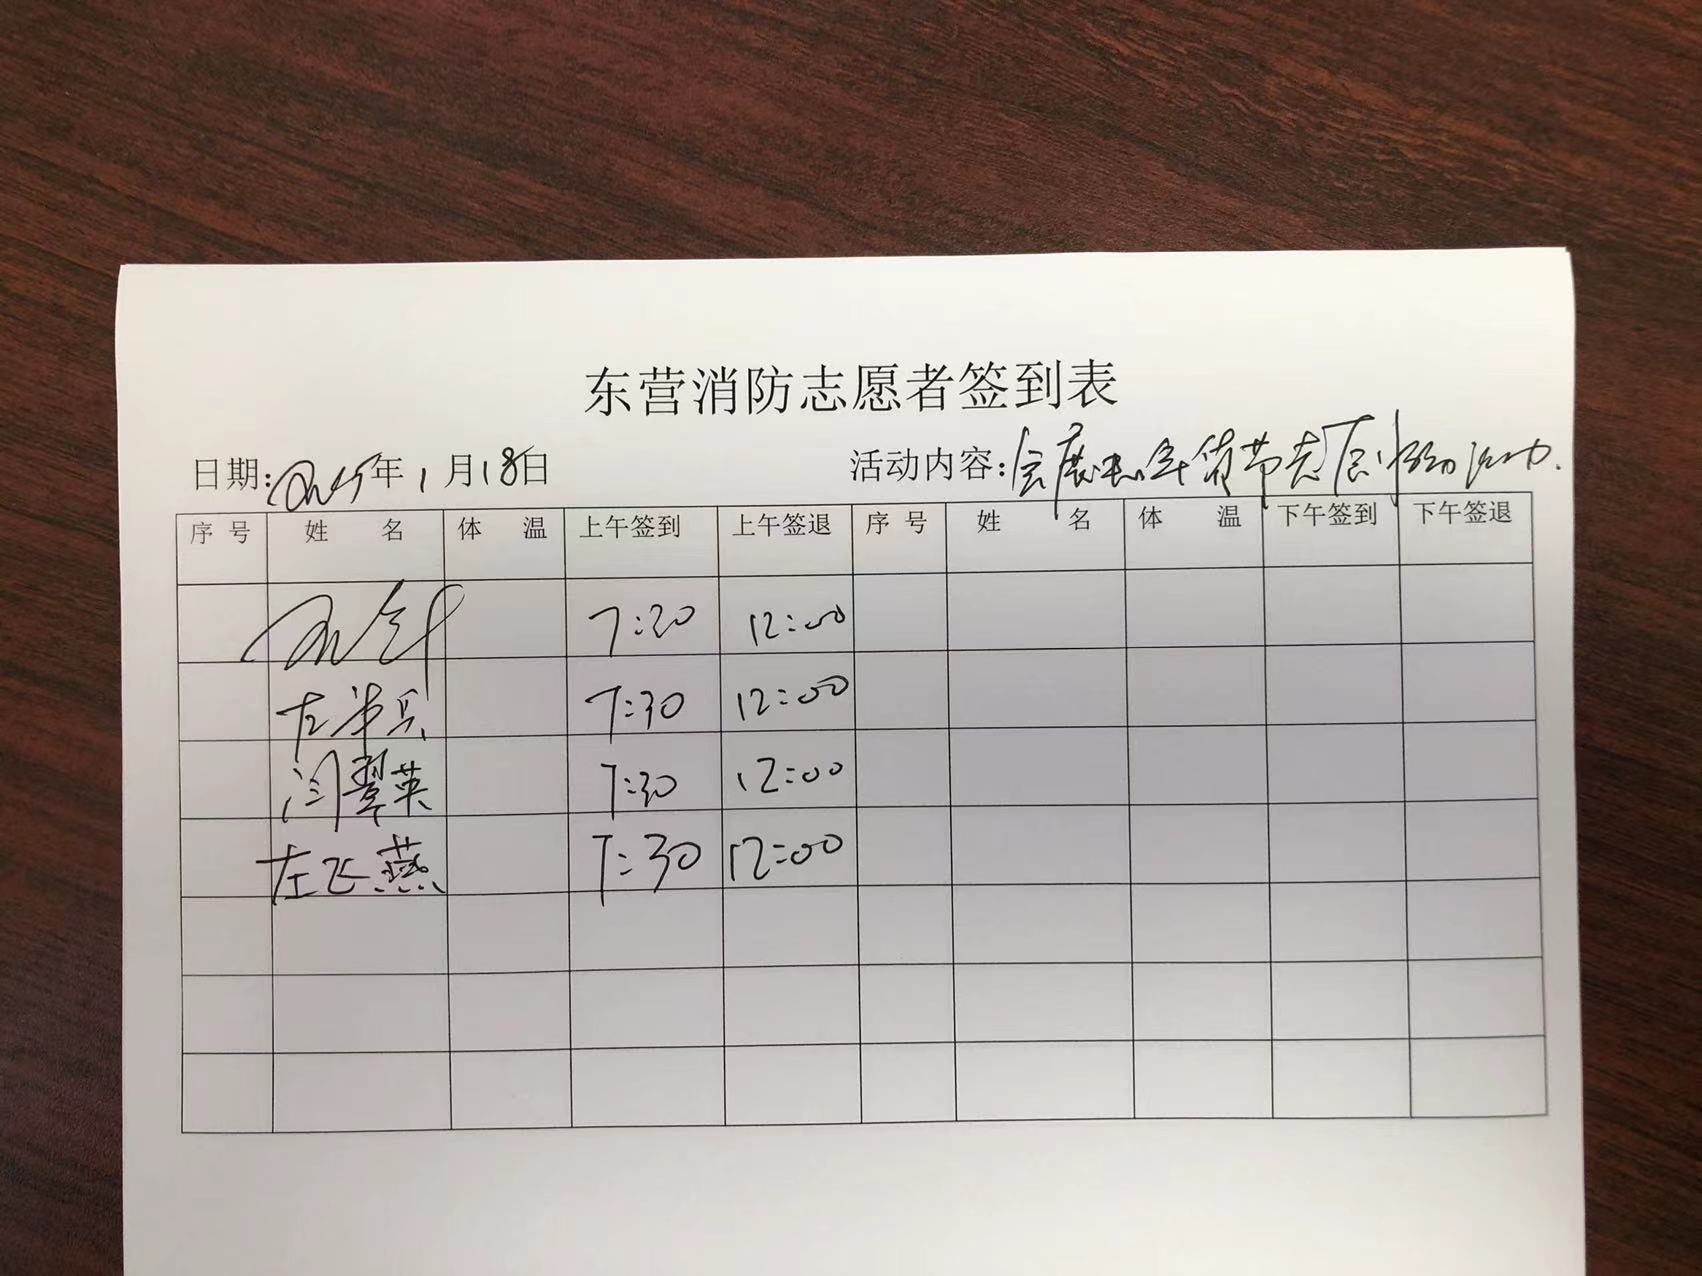 东营消防志愿者签到表
日期: 年1月18日 活动内容:会展中心年货节志愿服务活动.
序号 姓名 体温 上午签到 上午签退 序号 姓名 体温 下午签到 下午签退
7:20 12:00
左 兵 7:30 12:00
闫翠英 7:30 12:00
左飞燕 7:30 12:00